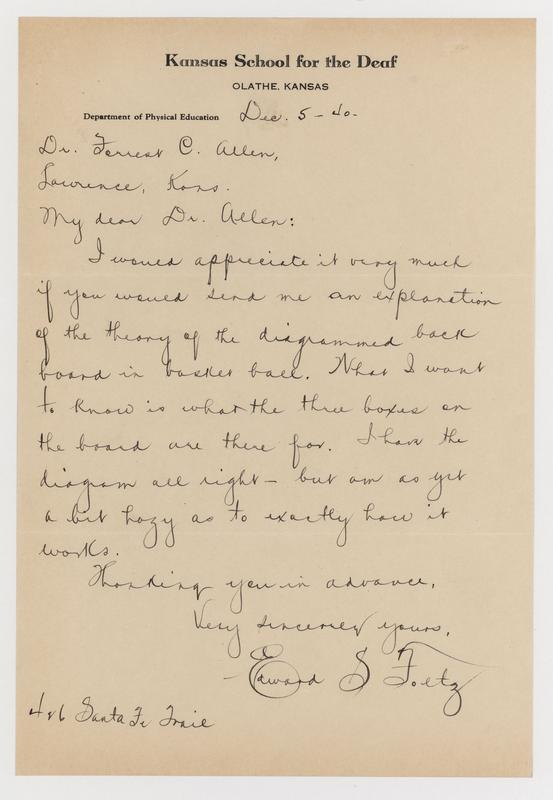 Kansas School for the Deaf
OLATHE, KANSAS
Department of Physical Education Dec. 5 - 40.
Dr. Forrest C. Allen,
Lawrence, Kans.
My dear Dr. Allen:
I would appreciate it very much
if you would send me an explanation
of the theory of the diagrammed back
board in basket ball. What I want
to know is what the three boxes on
the board are there for. I have the
diagram all right - but am as yet
a bit hazy as to exactly how it
works.
Thanking you in advance,
Very sincerely yours,
Edward S Foltz
Santa Fe Trail